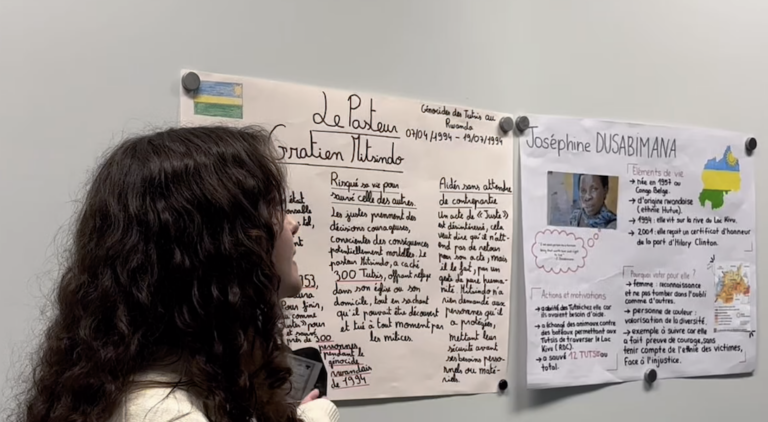 Le Pasteur
Gratien Mitsindo
Génocides des Tutsis au
Rwanda
07/04/1994 - 19/07/1994
était
053,
Pour finir,
comme
près de 300
personnes,
pendant le
génocide
rwandais
de 1994
Risqué sa vie pour
sauvé celle des autres.
Les justes prennent des
décisions courageuses,
conscientes des conséquences
potentiellement mortelles. Le
pasteur Mitsindo, a caché
300 Tutsis, offrant refuge
dans son église ou son
domicile, tout en sachant
qu'il pouvait être découvert
et tué à tout moment par
les milices.
Aidés sans attendre
de contrepartie
Un acte de "Juste"
est désintéressé, cela
veut dire qu'il n'att-
end pas de retour
pour son acte, mais
il le fait, par un
geste de pure huma-
nité. Mitsindo n'a
rien demandé aux
personnes qu'il
a protégées,
mettant leur
sécurité avant
ses besoins perso-
nnels ou maté-
riels
Joséphine DUSABIMANA
Eléments de vie
→ née en 1957 au
Congo Belge.
→ d'origine rwandaise
(ethnie Hutue).
→ 1994 : elle vit sur la rive du Lac Kivu.
→ 2001 : elle reçoit un certificat d'honneur
de la part d'Hilary Clinton.
Actions et motivations
→ a abrité des Tutsis chez elle car
ils avaient besoin d'aide.
→ a échangé des animaux contre
des bateaux permettant aux
Tutsis de traverser le Lac
Kivu (RDC).
→ a sauvé 12 TUTSI au
total.
Pourquoi voter pour elle ?
→ femme : reconnaissance
et ne pas tomber dans l'oubli
comme d'autres.
→ personne de couleur :
valorisation de la diversité.
→ exemple à suivre car elle
a fait preuve de courage, sans
tenir compte de l'ethnie des victimes,
face à l'injustice.